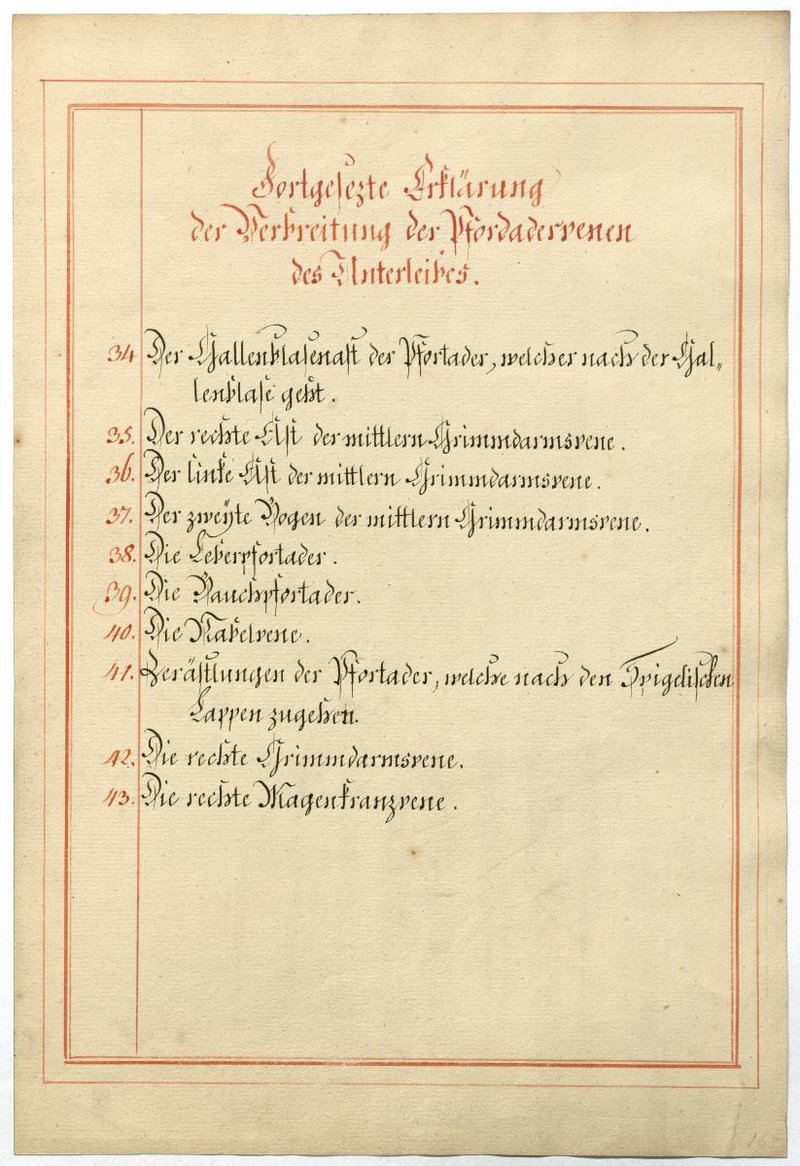 Fortgesezte Erklärung
der Verbreitung der Pfordadervenen
des Unterleibes.
34 Der Gallenblasenast der Pfortader, welcher nach der Gal„
lenblase geht.
35. Der rechte Ast der mittlern Grimmdarmsvene.
36. Der linke Ast der mittlern Grimmdarmsvene.
37. Der zweÿte Bogen der mittlern Grimmdarmsvene.
38. Die Leberpfortader.
39. Die Bauchpfortader.
40. Die Nabelvene.
41. Verästlungen der Pfortader, welche nach den Spigelischen
Lappen zugehen.
42. Die rechte Grimmdarmsvene.
43. Die rechte Magenkranzvene.